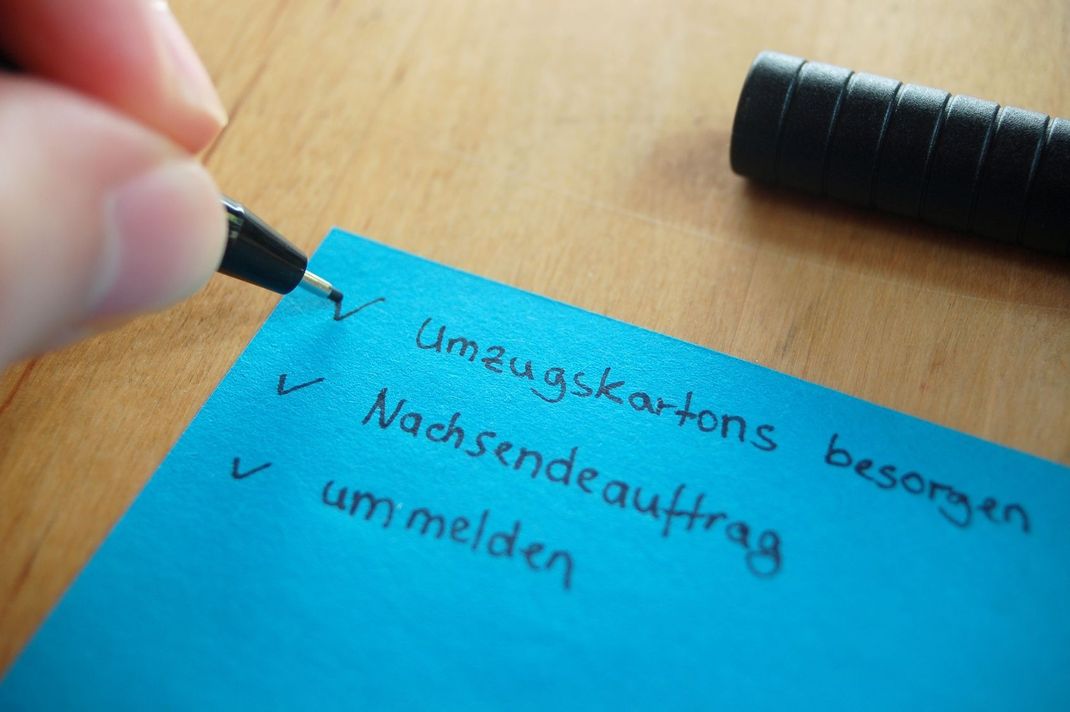 ✓ Umzugskartons besorgen
✓ Nachsendeauftrag
✓ ummelden